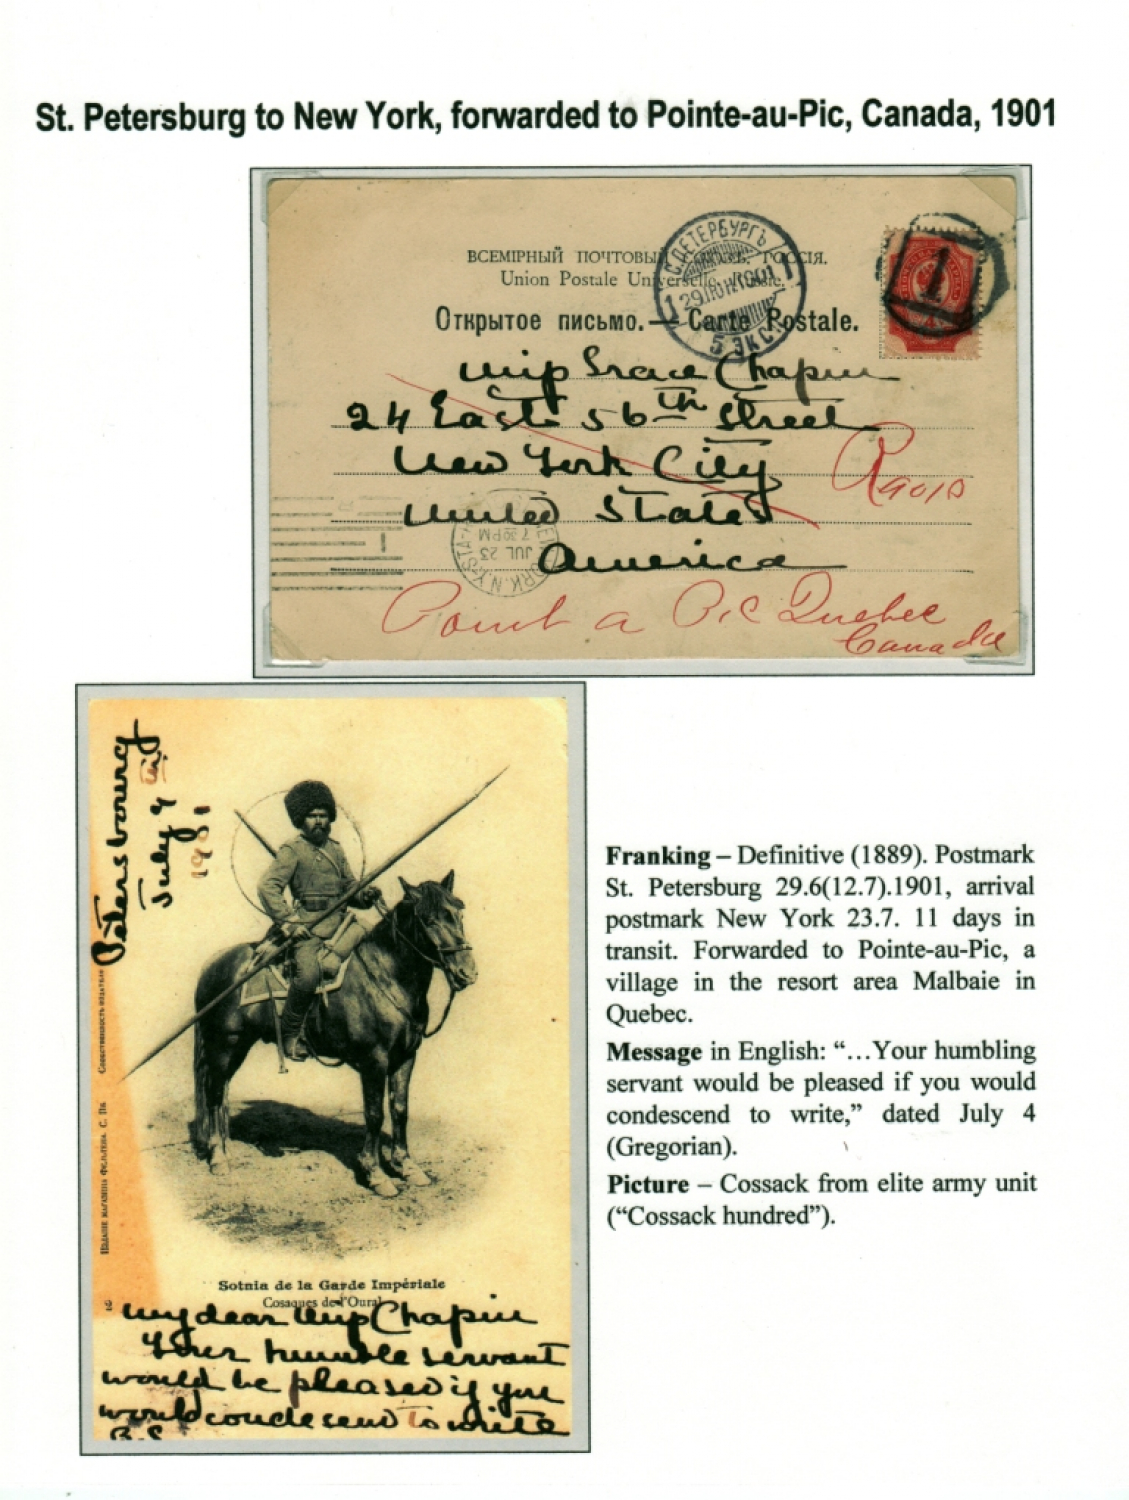 St. Petersburg to New York, forwarded to Pointe-au-Pic, Canada, 1901
ВСЕМІРНЫЙ ПОЧТОВЫЙ СОЮЗЪ. РОССІЯ.
Union Postale Universelle. Russie.
Открытое письмо. — Carte Postale.
С.ПЕТЕРБУРГЪ
29 1901
1 1
5 ЭКСП.
1
4
Miss Grace Chapin
24 East 56th Street
New York City
United States
America
JUL 23
7 30 PM
Point a Pic Quebec
Canada
Petersbourg
July 4
1901
Собственность издателя
Изданіе магазина Фельтена. С. Пб
16
Sotnia de la Garde Impériale
Cosaques de l'Oural
My dear Miss Chapin
Your humble servant
would be pleased if you
would condescend to write
Franking – Definitive (1889). Postmark
St. Petersburg 29.6(12.7).1901, arrival
postmark New York 23.7. 11 days in
transit. Forwarded to Pointe-au-Pic, a
village in the resort area Malbaie in
Quebec.
Message in English: “…Your humbling
servant would be pleased if you would
condescend to write,” dated July 4
(Gregorian).
Picture – Cossack from elite army unit
(“Cossack hundred”).